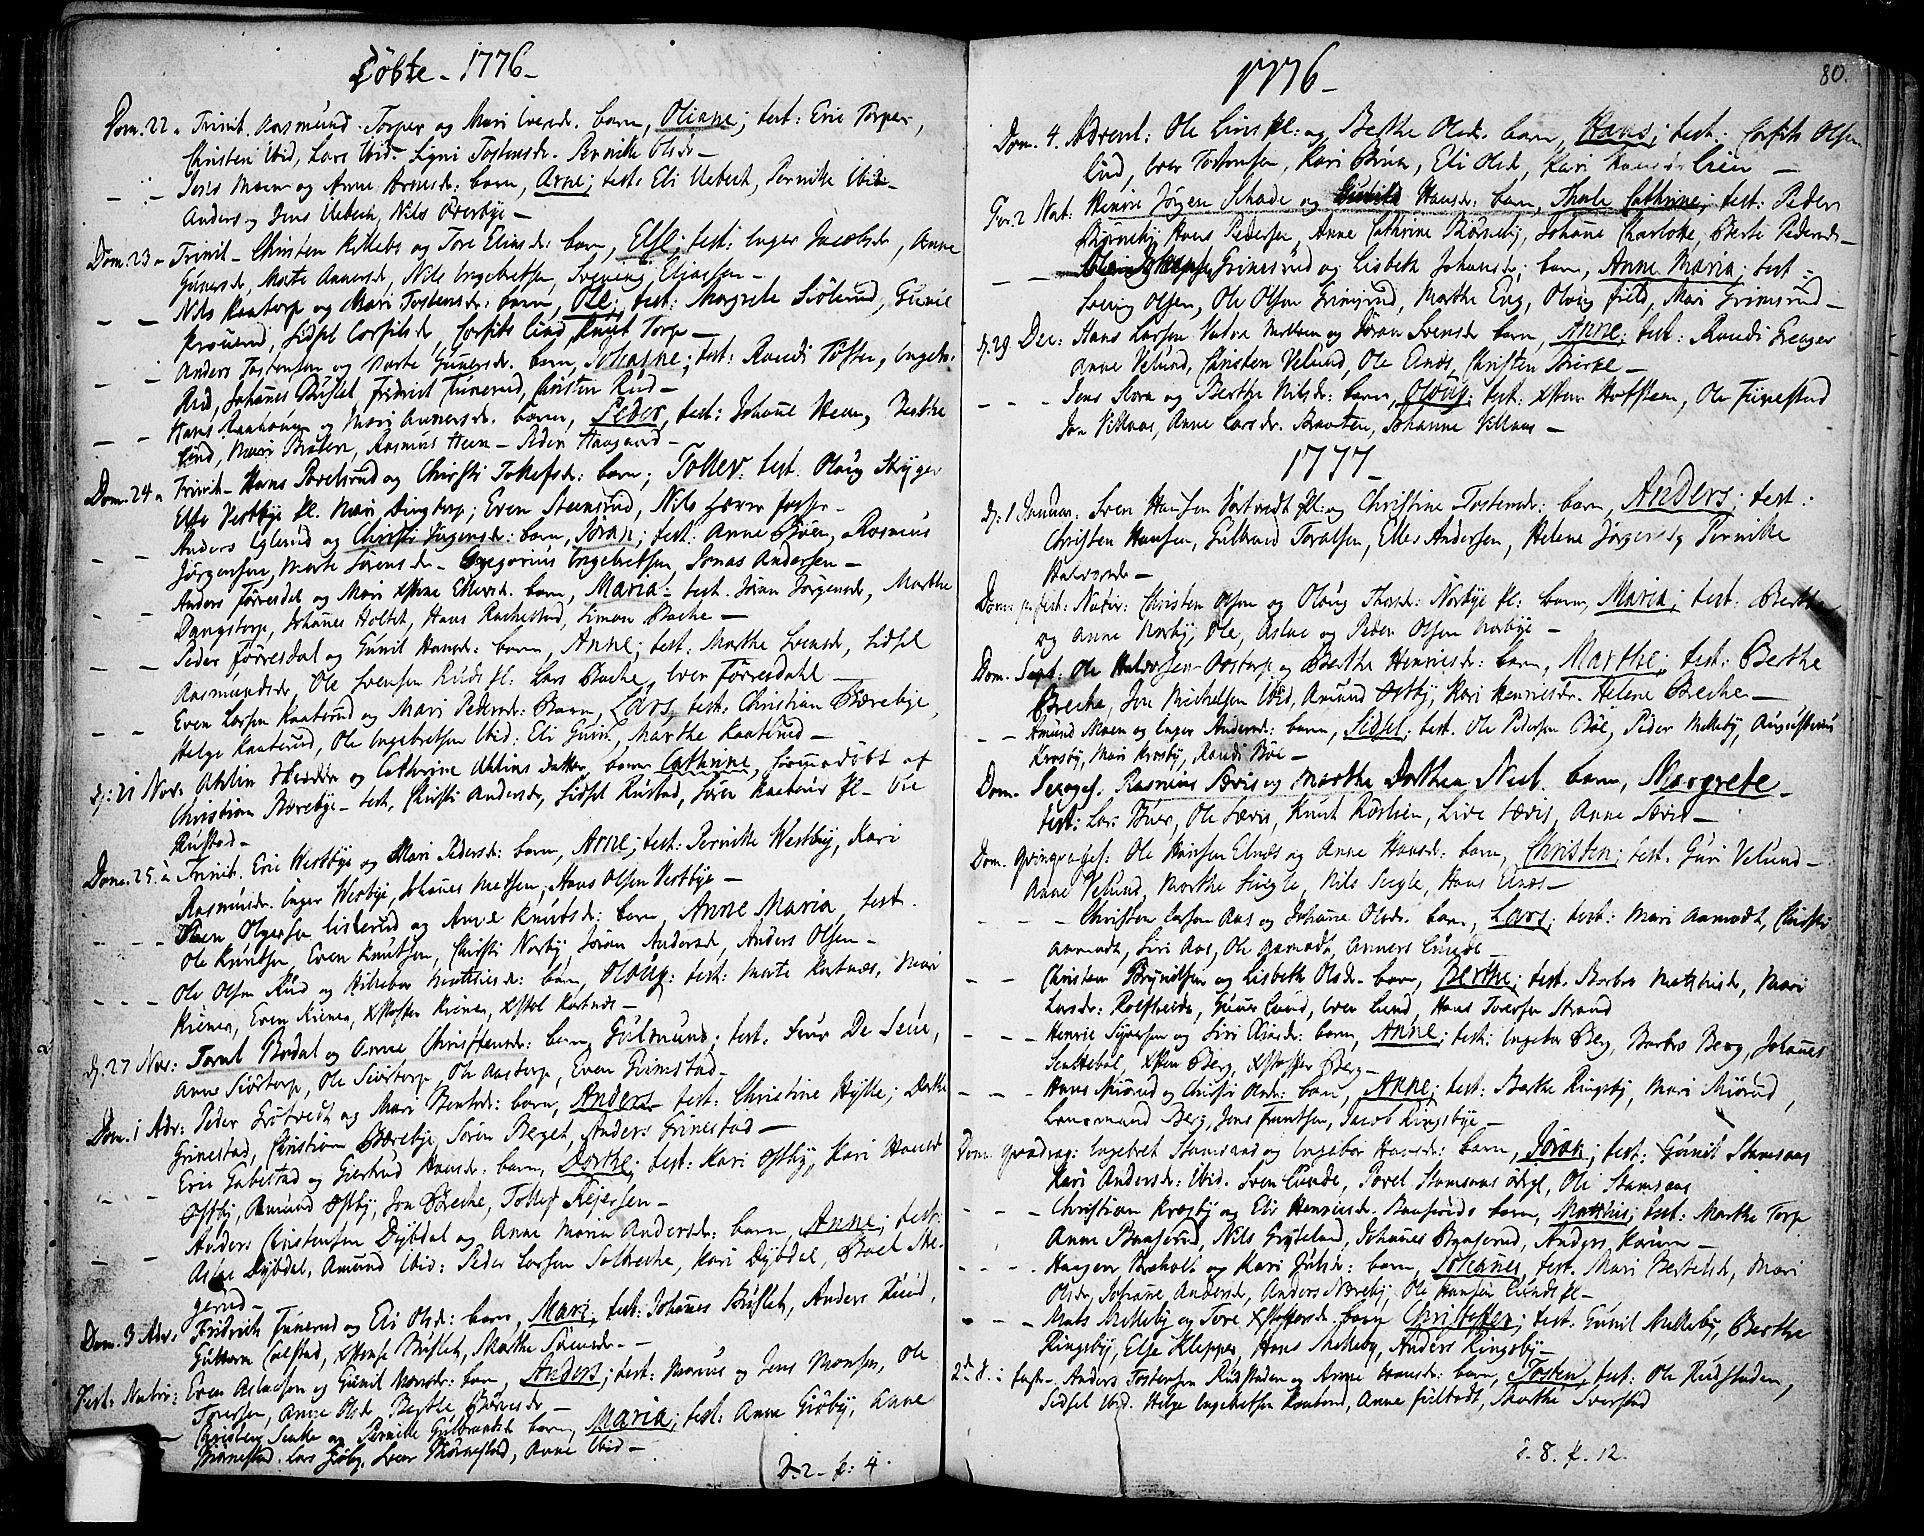 Döbte - 1776 -
Dom. 22 a Trinit. Rasmund Torper og Mari Iversdr. barn, Oliane; test: Eric Torper,
Christen Ibid, Lars Ibid. Signi Tostensdr. Pernille Olsdr -
Jens Moen og Anne Arnesdr: barn, Arne; test: Eli Uebech, Pernille Ibid -
Anders og Jens Uebech, Nils Överbye -
Dom. 23 a Trinit - Christen Killebo og Tore Eliasdr: barn, Else; test: Inger Jacobsdr, Anne
Gunersdr, Marte Annersdr, Nils Ingebretsen, Svening Eliassen -
Nils Kaatorp og Mari Tostensdr: barn, Ole; test: Margrete Siölerud, Gunil
Krouerud, Sidsel Corfitsdr, Corfits Lund, Knut Torp -
Anders Tostensen og Marte Gunersdr: barn, Johanne; test: Randi Töften, Ingebr.
Rud, Johanes Buslet, Fridrich Funerud, Christen Rud -
Hans og Mari Annersdr. barn, Peder, test: Johane Heen, Berthe
Lund, Mari Braten, Rasmus Heen - Peder Haugaard -
Dom. 24 a Trinit - Hans Povelsrud og Christi Tollefsdr: barn; Tollev. test. Oloug Skyger
Else Vestbye pl. Mari Dingtorp; Even Steensrud, Nils
Anders Eglerud og Christi Jörgensdr: barn, Joran; test: Anne Broen, Rasmus
Jörgensen, Marte Sörensdr - Gregorius Ingebretsen, Jonas Andersen -
Anders Förresdal og Mari Ellersdr. barn, Maria - test. Joran Jörgensdr, Marthe
Dangstorp, Johanes Holtet, Hans Rackestad, Simon Backe -
Peder Förresdal og Gunil Hansdr: barn, Anne; test: Marthe Svensdr, Sidsel
Rasmundsdr, Ole Svensen Ruds pl: Lars Backe, Iver Förresdahl -
Even Larsen Kaaterud og Mari Pedersdr: Barn, Lars, test: Christian Bærebye,
Helge Kaaterud, Ole Ingebretsen Ibid: Eli Guin, Marthe Kaaterud -
d: 21 Nov: og Cathrine datter, barn Cathrine, hiemedöbt af
Christian Bærebye - test, Christi Andersdr, Sidsel Rustad, Sören pl - Ole
Rustad -
Dom. 25 a Trinit. Eric Westbye og Mari Pedersdr: barn, Arne; test: Pernille Westbye, Kari
Rasmusdr. Inger Westbye, Johanes Madsen, Hans Olsen Westbye -
og Anne Knutsdr: barn, Anne Maria, test.
Ole Knutsen, Even Knutsen, Christi Norby, Joran Andersdr, Anders Olsen -
Ole Olsen Rud og Mattiasdr: barn, Oloug: test: Marte Katnæs, Mari
Kirenes, Even Kirenes, -
d: 27 Nov: Bradal og Anne Christensdr: barn Gulmund: test.
Anne Siörtorp, Ole Siörtorp, Ole Aastorp, Even Grimstad -
Dom. 1 Adv: Peder Grötvedt og Mari Bentsdr: barn, Anders test: Christine Hytte; Dorthe
Grinestad, Christian Bærebye, Sören Berget, Anders Grinestad -
Eric Gabestad og Giertrud Hansdr: barn, Dorthe; test: Kari Ostby, Kari Hansdr
Ostby, Amund Ostby, Jon Breche, Tollef Reiersen -
Anders Christensen Dybdal og Anne Maria Andersdr: barn, Anne; test:
Aslac Dybdal, Amund Ibid: Peder Larsen Solbreche, Kari Dybdal, Boel Me-
gerud -
Dom. 3 Adv: Fridrich Funerud og Eli Olsdr: barn, Mari; test: Johanes Buslet, Anders Rud,
Guttorm Calstad, Buslet, Marthe Sörensdr -
Fest: Nativ: Even Aslacsen og Gunil barn, Anders; test: Marcus og Jens Monsen, Ole
Toresen, Anne Olsdr, Berthe
Christen og Pernille Gulbrandsdr barn, Maria; test: Anne Giöby, Anne
Thornestad. Lars Giöby, Svenn Thornestad, Anne Ibid -
d. 2 - f: 4.
1776 -
80.
Dom. 4. Advent: Ole Lins pl: og Berthe Olsdr. barn, Hans; test: Corfits Olsen
Lund, Iver Tostensen, Kari Bruen, Eli Olsdr, Kari Hansdr Lien -
Fer. 2 Nat: Henric Jörgen Schade og Hansdr: barn, Thale Cathrine; test: Peder
Biörneby Hans Pedersen, Anne Cathrine Biörneby, Johane Charlotte, Berte Pedersdr -
Grimsrud og Lisbeth Johansdr; barn, Anne Maria; test:
Svenig Olsen, Ole Olsen Grimsrud, Marthe Eng, Oloug field, Mari Grimsrud -
d. 29 Dec: Hans Larsen og Joran Svensdr barn, Anne; test: Randi Greager
Anne Velund, Christen Velund, Ole Enæs, Christen -
Jens Hora og Berthe Nilsdr: barn, Oloug; test: Hoffsteen, Ole Funestad
Jon Villaas, Anne Larsdr. Braaten, Johanne Villaas -
1777 -
d: 1 Januar: Sven Hansen pl: og Christine Tostensdr: barn, Anders; test:
Christen Hansen, Gulbrand Toralsen, Elles Andersen, Helene Jörgensdr, Pernille
Halvorsdr -
Dom. p. fest: Nativ: Christen Olsen og Oloug Thorsdr: Norbye pl: barn, Maria; test: Berthe
og Anne Norby, Ole, Aslac og Peder Olsen Norbye -
Dom. Sept: Ole Halvorsen Oostorp og Berthe Henricsdr: barn, Marthe; test: Berthe
Breche, Jon Michelsen Ibid, Amund Ostby, Kari Henricsdr. Helene Breche -
Amund Moen og Inger Andersdr: barn, Sidsel; test. Ole Pedersen Böe, Peder Melleby, Augustinus
Krosby, Mari Krosby, Randi Böe -
Dom. Sexages. Rasmus Særis og Marthe Dorthea Neel. barn, Margrete -
test: Lars Buer, Ole Særis, Knut Röelsen, Live Særis, Anne Særis -
Dom. qvinqvages: Ole Hansen Elnæs og Anne Hansdr: barn, Christen; test. Guri Velund -
Anne Velund, Marthe Siegle, Nils Siegle, Hans Enæs -
Christen Larsen Aas og Johane Olsdr. barn, Lars; test: Mari Aamodt, Christi
Aamodt, Siri Aas, Ole Aamodt, Anners
Christen Brynildsen og Lisbeth Olsdr. barn, Berthe; test. Barbro Mattisdr, Mari
Larsdr: Rolfsheide, Guner Lund, Iver Lund, Hans Toresen Strand
Henric og Siri barn, Anne; test: Ingebor Berg, Barbro Berg, Johanes
Berg, Berg -
Hans Miörud og Christi Andr: barn, Anne; test: Berthe Ringsby, Mari Miörud,
Berg, Jens Frantsen, Jacob Ringsbye -
Dom. qvadrag: Ingebret Stamsaas og Ingebor Hansdr: barn, Joran; test: Gunil Stamsaas
Kari Andersdr: Ibid. Sven Lunde, Povel Stamsaas ödeg, Ole Stamsaas
Christian Krosby og Elis Henricsdr. Baaserud: barn, Mathis; test: Marthe Torp
Anne Baaserud, Nils Gryteland, Johanes Baaserud, Anders Haier -
Haagen Breholt og Kari Julsdr: barn, Johanes, test. Mari Bertelsdr, Mari
Olsdr, Johane Andersdr, Anders Næreby, Ole Hansen Lunds pl -
Mats Melleby og Tore barn Christoffer; test. Gunil Melleby, Berthe
Ringsby, Else Klepper, Hans Melleby, Anders Ringsby -
2d. S. i faste - Anders Tostensen Rudstaden og Anne barn, Tosten; test: Ole Rudstaden,
Sidsel Ibid. Helge Ingebretsen Kaaterud, Anne Fielbodt, Marthe Sverstad
d. 8. f. 12.